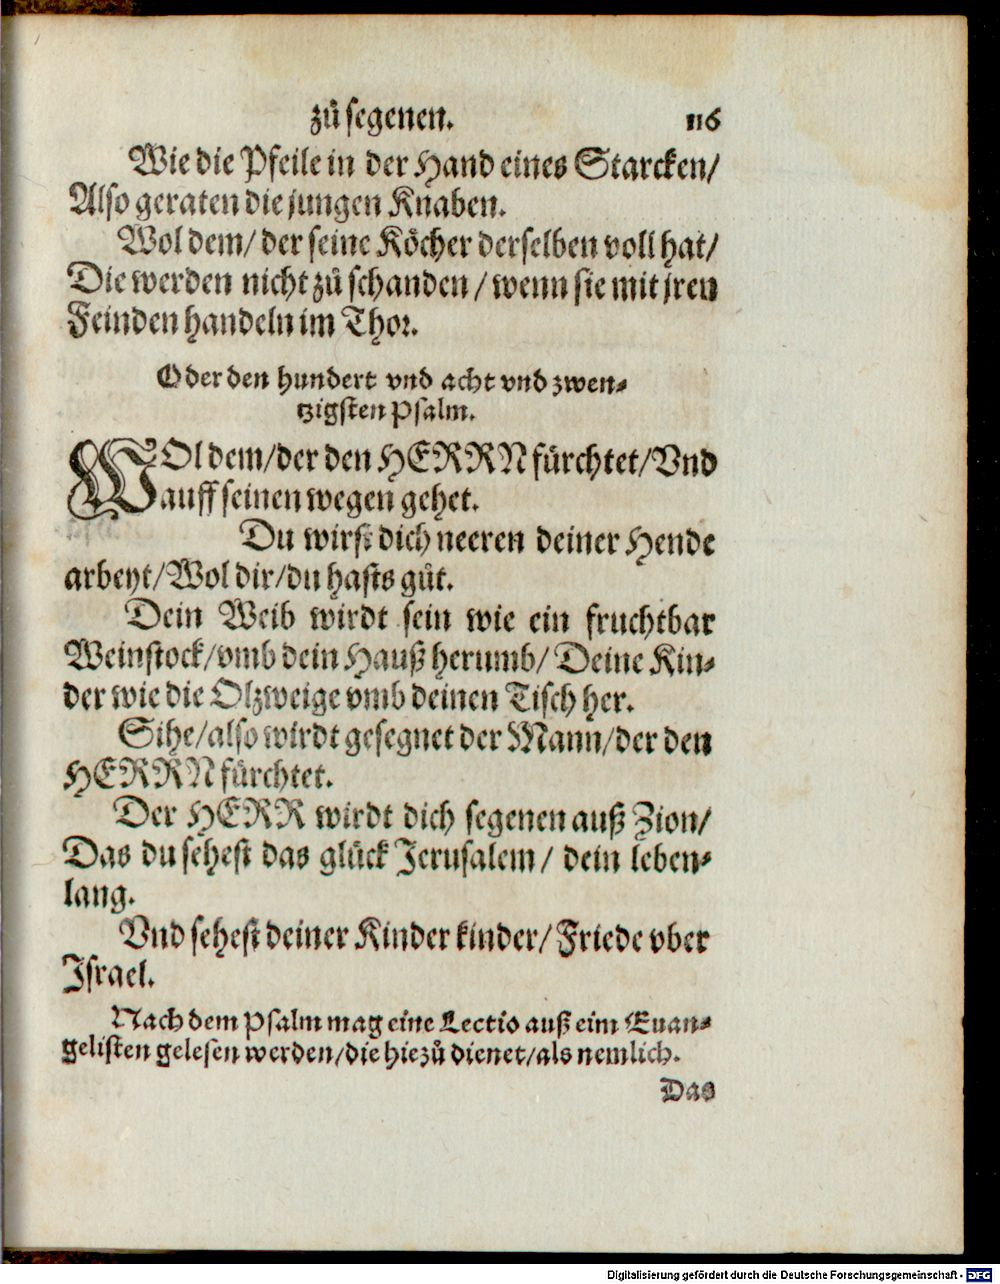 zů segenen. 116
Wie die Pfeile in der Hand eines Starcken/
Also geraten die jungen Knaben.
Wol dem/ der seine Köcher derselben voll hat/
Die werden nicht zů schanden/ wenn sie mit jren
Feinden handeln im Thor.
Oder den hundert vnd acht vnd zwen-
tzigsten Psalm.
WOl dem/der den HERRN fürchtet/Vnd
auff seinen wegen gehet.
Du wirst dich neeren deiner Hende
arbeyt/Wol dir/du hasts gůt.
Dein Weib wirdt sein wie ein fruchtbar
Weinstock/vmb dein Hauß herumb/ Deine Kin-
der wie die Olzweige vmb deinen Tisch her.
Sihe/also wirdt gesegnet der Mann/der den
HERRN fürchtet.
Der HERR wirdt dich segenen auß Zion/
Das du sehest das glück Jerusalem/ dein leben-
lang.
Vnd sehest deiner Kinder kinder/ Friede vber
Israel.
Nach dem Psalm mag eine Lectio auß eim Euan-
gelisten gelesen werden/die hiezů dienet/als nemlich.
Das
Digitalisierung gefördert durch die Deutsche Forschungsgemeinschaft - DFG